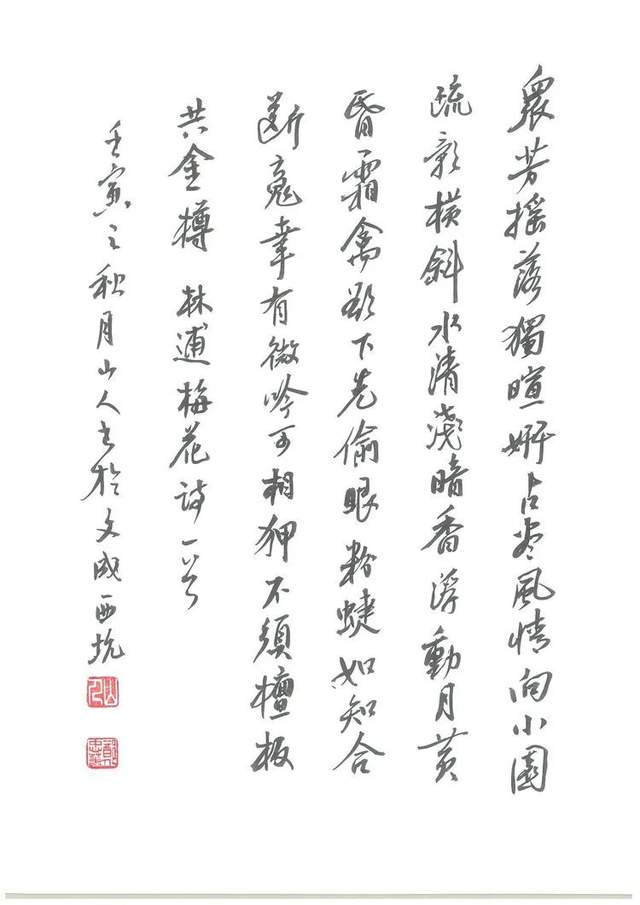 衆芳摇落獨暄妍占尽風情向小園
疏影横斜水清淺暗香浮動月黄
昏霜禽欲下先偷眼粉蝶如知合
断魂幸有微吟可相狎不須檀板
共金樽 林逋梅花诗一首
壬寅之秋月山人书於文成西坑